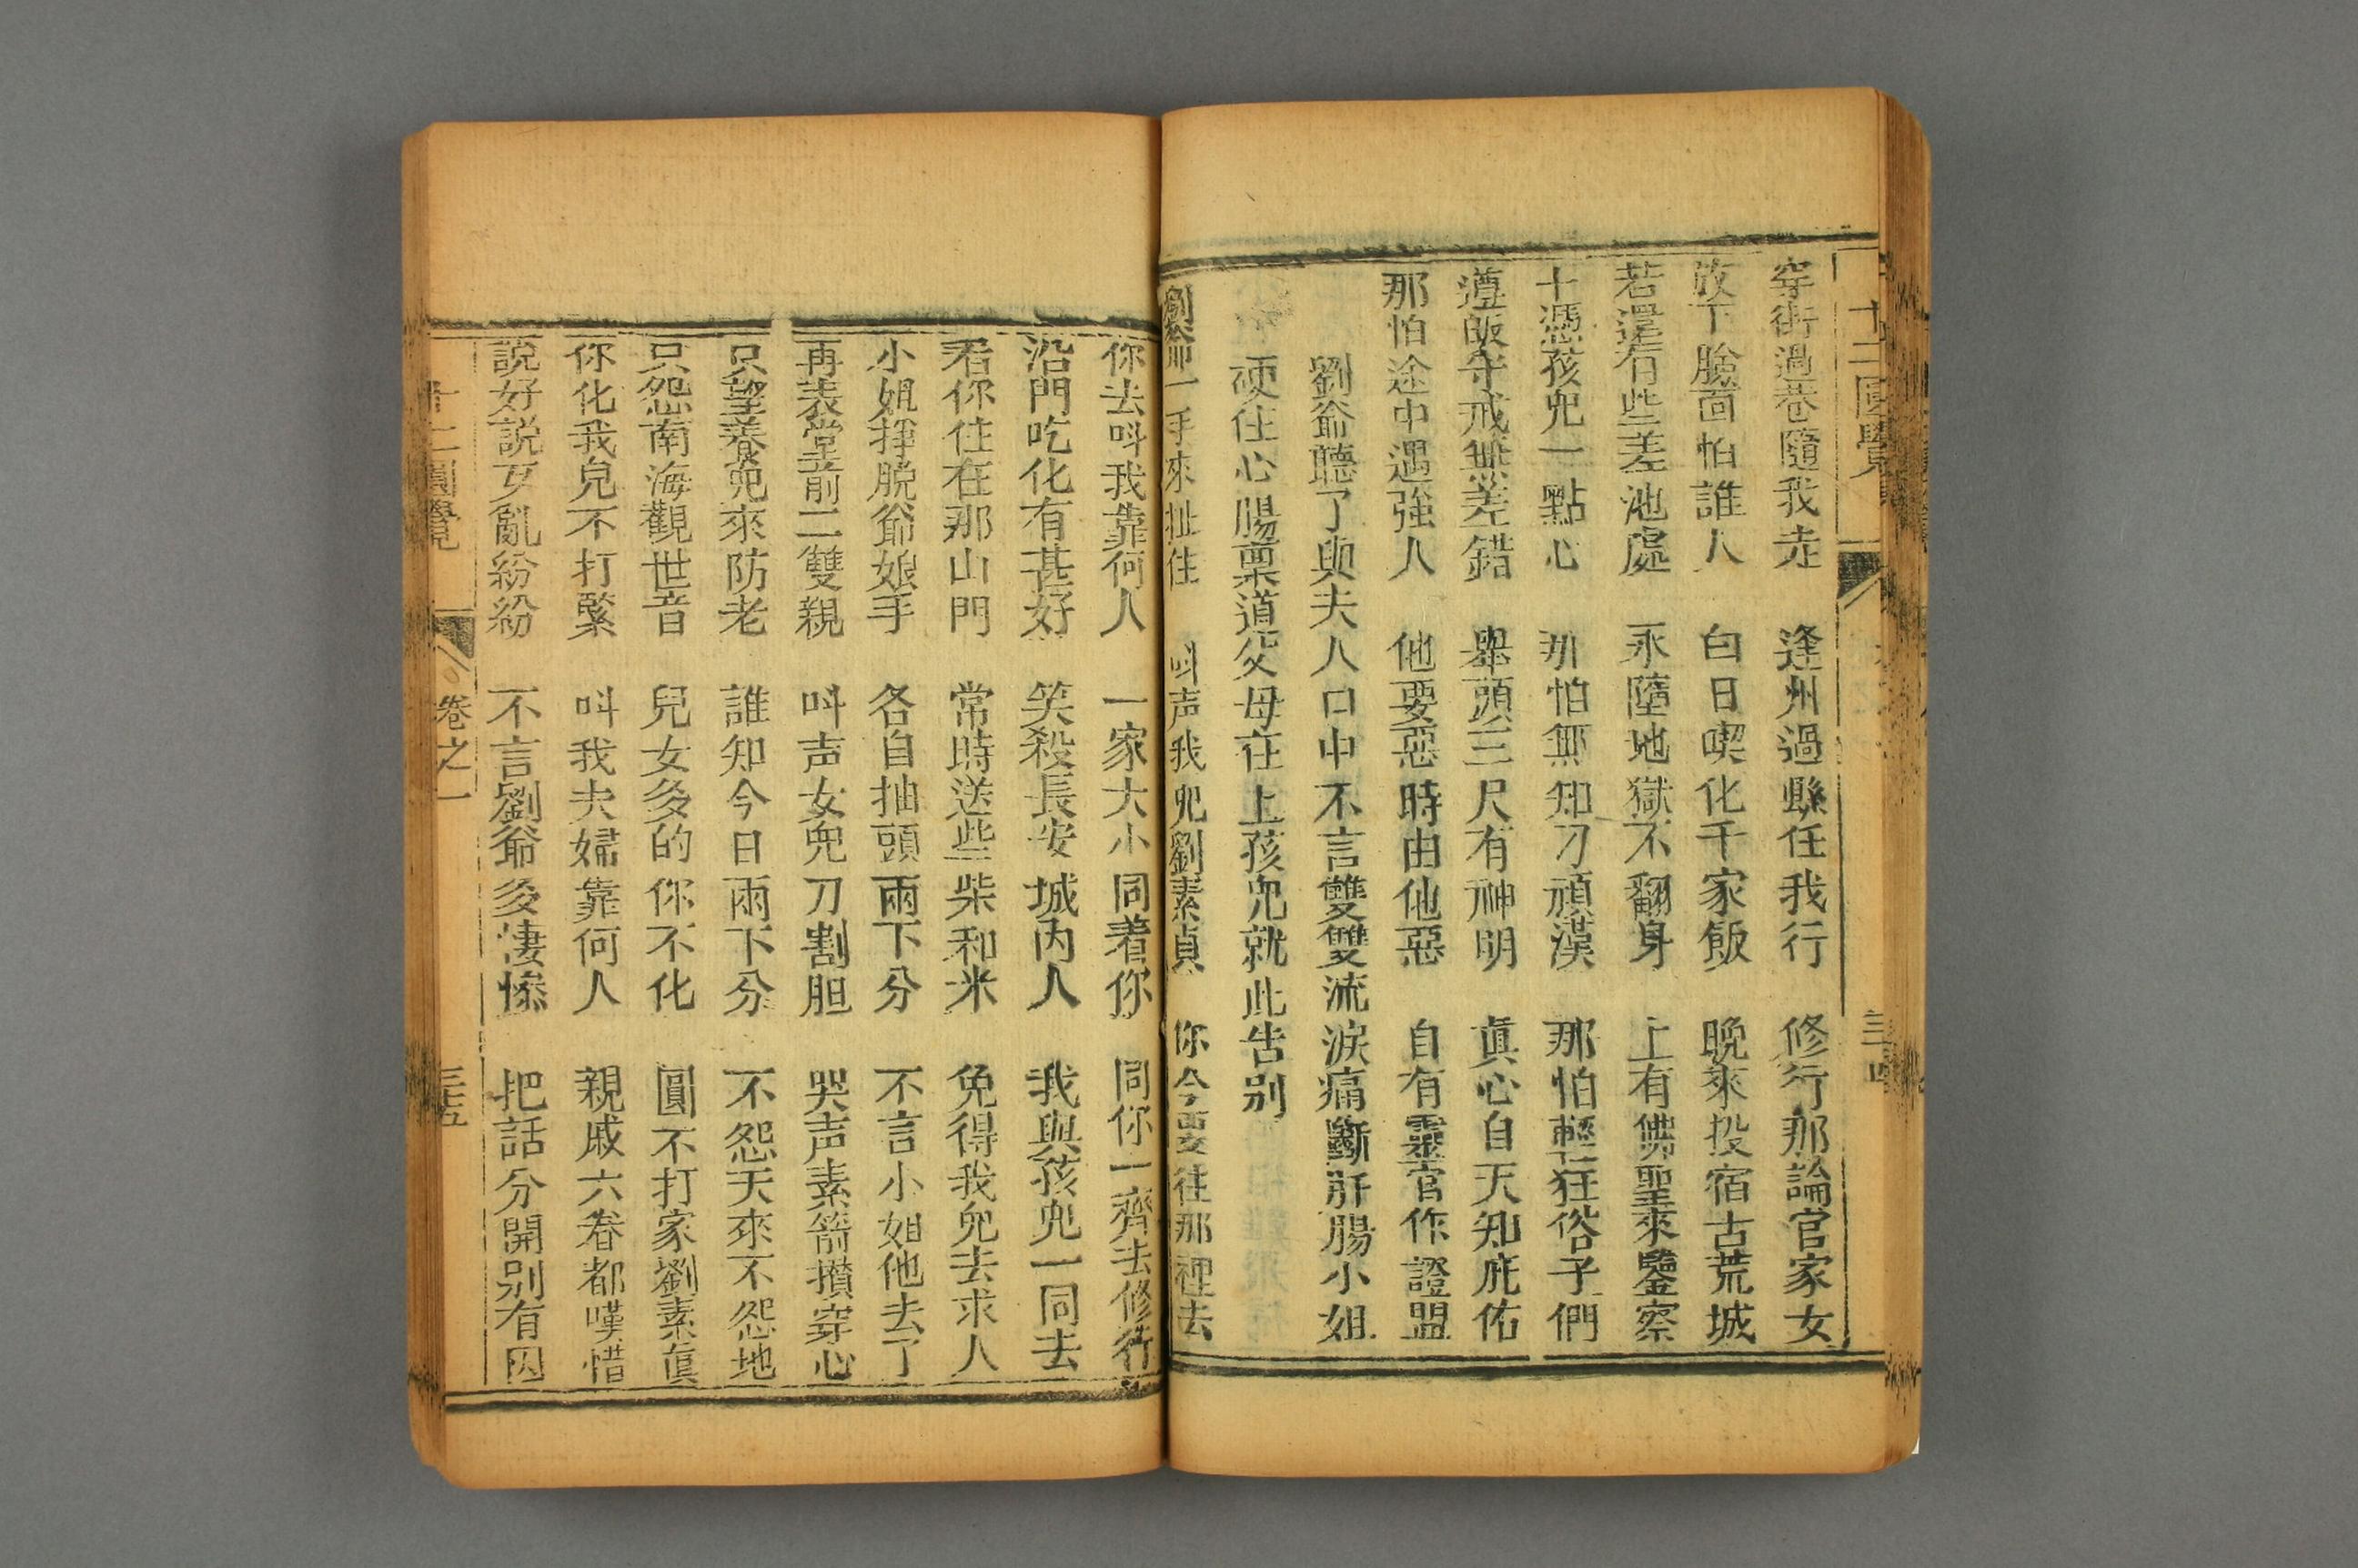 十二圓覺
三十四
穿街過巷隨我走 逢州過縣任我行 修行那論官家女
放下臉面怕誰人 白日喫化千家飯 晚來投宿古荒城
若還有些差池處 永墮地獄不翻身 上有佛聖來鑒察
十憑孩兒一點心 那怕無知刁頑漢 那怕輕狂俗子們
遵皈守戒無差錯 舉頭三尺有神明 眞心自天知庇佑
那怕途中遇強人 他要惡時由他惡 自有靈官作證盟
劉爺聽了與夫人口中不言雙雙流淚痛斷肝腸小姐
硬住心腸稟道父母在上孩兒就此告别
劉爺一手來扯住 呌声我兒劉素貞 你今要往那裡去
你去呌我靠何人 一家大小同着你 同你一齊去修行
沿門吃化有甚好 笑殺長安城内人 我與孩兒一同去
看你住在那山門 常時送些柴和米 免得我兒去求人
小姐掙脱爺娘手 各自抽頭兩下分 不言小姐他去了
再表堂前二雙親 呌声女兒刀割胆 哭声素箭攢穿心
只望養兒來防老 誰知今日兩下分 不怨天來不怨地
只怨南海觀世音 兒女多的你不化 圓不打家劉素眞
你化我兒不打緊 呌我夫婦靠何人 親戚六眷都嘆惜
説好説歹亂紛紛 不言劉爺多悽慘 把話分開别有因
十二圓覺
卷之一
三十五